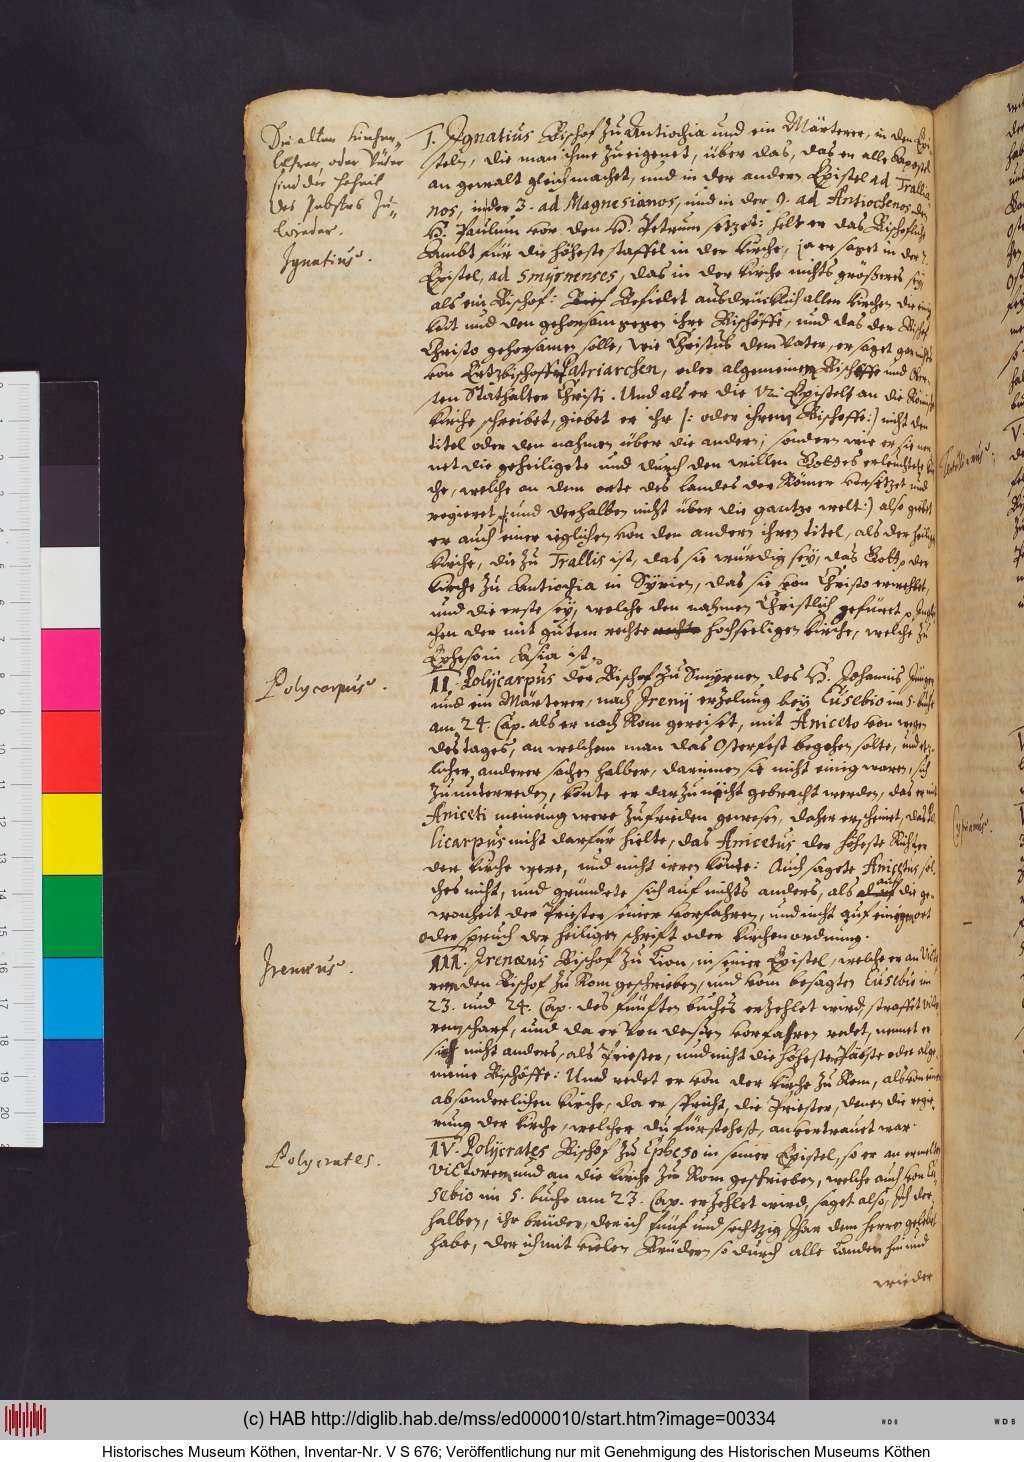 Die alten Kirchen=
lehrer oder Väter
sind der hoheit
des Pabstes zu=
wieder.
Ignatius.
I. Ignatius Bischof zu Antiochia und ein Märterer, in den Epi
steln, die man ihme zueigenet, über das, das er alle Apostel
an gewalt gleich machet, und in der andern Epistel ad Trallia
nos, in der 3. ad Magnesianos, und in der 9. ad Antiochenos den
H. Paulum vor den H. Petrum setzet: helt er das Bischofliche
Ambt für die höheste staffel in der Kirche, ja er saget in der 7.
Epistel, ad Smyrnenses, das in der Kirche nichts grösseres sey
als ein Bischof: Befielet ausdrücklich allen Kirchen die einig
keit und den gehorsam gegen ihre Bischöffe, und das der Bischof
Christo gehorsamen solle, wie Christus dem Vater, er saget gar nichts
von Ertzbischoffen Patriarchen, oder algemeinem Bischoffe und
sten Stathalter Christi. Und als er die 12. Epistel an die Römische
Kirche schreibet, giebet er ihr |: oder ihrem Bischoffe :| nicht den
titel oder den nahmen über die andern, sondern wie er sie nen
net die geheiligete und durch den willen Gottes erleuchtete Kir
che, welche an dem orte des landes der Römer vorsitzet und
regieret, |: und derhalben nicht über die gantze welt :| also giebet
er auch einer ieglichen von den andern ihren titel, als der heiligen
Kirche, die zu Trallis ist, das sie würdig sey, das Gott, der
Kirche zu Antiochia in Syrien, das sie von Christo erwehlet,
und die erste sey, welche den nahmen Christlich gefüret,
chen der mit gutem rechte hochseeligen Kirche, welche zu
Epheso in Asia ist.
Polycarpus.
II. Polycarpus der Bischof zu Smyrnen, des H. Johannis Jünger
und ein Märterer, nach Irenij erzelung bey Eusebio im 5. buch
am 24. Cap. als er nach Rom gereiset, mit Aniceto von wegen
des tages, an welchem man das Osterfest begehen solte, und etz
licher anderer sachen halber, darinnen sie nicht einig waren, sich
zu unterreden, konte er darzu nicht gebracht werden, das er mit
Aniceti meinung were zufrieden gewesen, daher erscheinet, das Po
licarpus nicht darfür hielte, das Anicetus der höheste Richter
der Kirche were, und nicht irren könte: Auch sagete Anicetus sol
ches nicht, und gründete sich auf nichts anders, als auf die ge
wonheit der Priester seiner vorfahren, und nicht auf einigen ort
oder spruch der heiligen schrift oder Kirchenordnung.
Irenæus.
III. Irenæus Bischof zu Lion, in seiner Epistel, welche er an Victo
rem den Bischof zu Rom geschrieben, und vom besagten Eusebio im
23. und 24. Cap. des fünften buches erzehlet wird, straffet Victo
rem scharf, und da er von dessen vorfahren redet, nennet er
sie nicht anders, als Priester, und nicht die höhesten Päpste oder alge
meine Bischöffe: Und redet er von der Kirche zu Rom, als von einer
absonderlichen Kirche, da er spricht, die Priester, denen die regie
rung der Kirche, welcher du fürstehest, anvertrauet war.
Polycrates.
IV. Polycrates Bischof zu Epheso in seiner Epistel, so er an ermelten
Victorem und an die Kirche zu Rom geschrieben, welche auch von Eu
sebio im 5. buche am 23. Cap. erzehlet wird, saget also, Ich der
halben, ihr brüder, der ich fünf und sechtzig Jhar dem Herren gelebet
habe, der ich mit vielen Brüdern so durch alle Landen hin und
wieder
Tertullianus
Cyprianus.
(c) HAB http://diglib.hab.de/mss/ed000010/start.htm?image=00334
WDB
WDB
Historisches Museum Köthen, Inventar-Nr. V S 676; Veröffentlichung nur mit Genehmigung des Historischen Museums Köthen